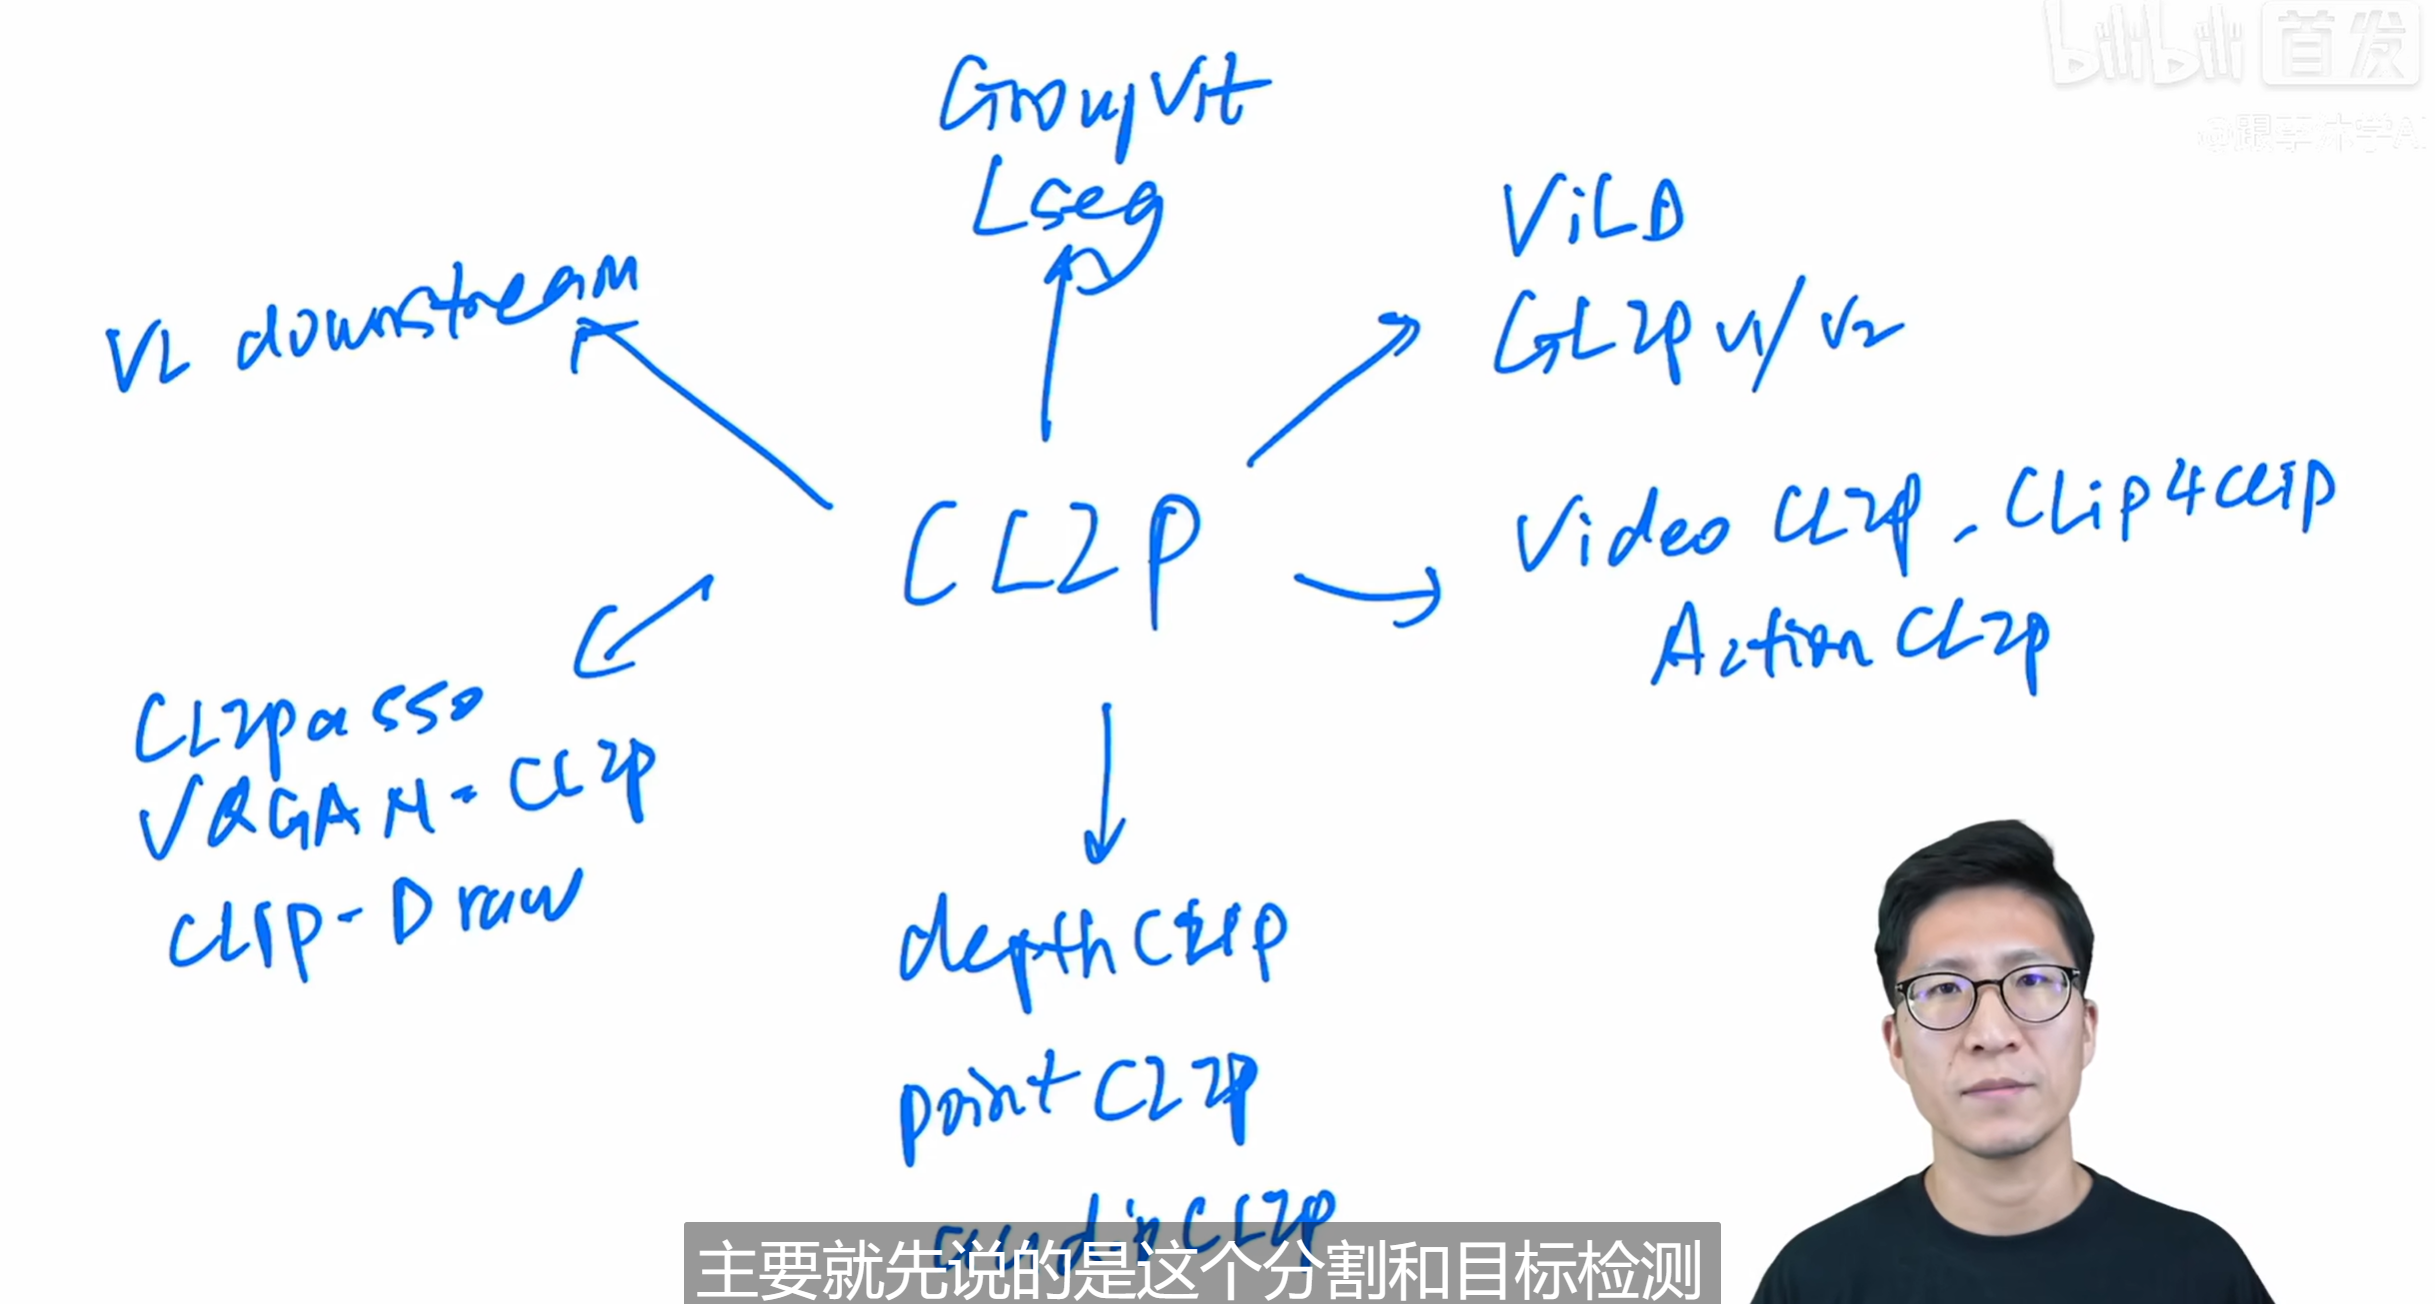 bilibili 首发
@跟李沐学AI
GroupVit
Lseg
ViLD
GLIP v1/v2
VL downstream
Video CLIP, CLip4clip
ActionCLIP
CLIP
CLIPasso
VQGAN-CLIP
CLIP-Draw
depthCLIP
pointCLIP
audioCLIP
主要就先说的是这个分割和目标检测